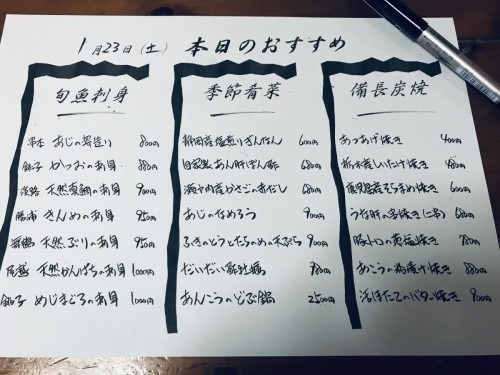 1月23日(土) 本日のおすすめ
旬魚刺身
あじの姿造り 800円
銚子 かつおの刺身 880円
淡路 天然真鯛の刺身 900円
勝浦 きんめの刺身 950円
天然ぶりの刺身 950円
尾鷲 天然かんぱちの刺身 1000円
銚子 めじまぐろの刺身 1000円
季節肴菜
静岡産塩煎りぎんなん 600円
自家製あん肝ぽん酢 680円
680円
あじのなめろう 900円
ふきのとうとたらのめの天ぷら 900円
だいだい酢牡蠣 980円
あんこうのどぶ鍋 2500円
備長炭焼
あつあげ焼き 400円
栃木産しいたけ焼き 680円
鹿児島産そらまめ焼き 600円
うなぎ肝の串焼き(二串) 680円
豚トロの藻塩焼き 780円
あこうの粕漬け焼き 880円
活ほたてのバター焼き 900円